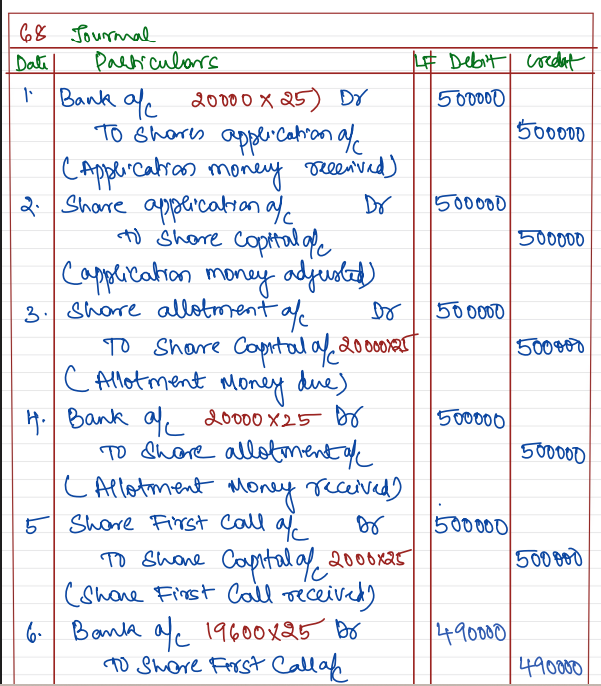 68 Journal
Date Particulars LF Debit Credit
1. Bank a/c 20000 x 25) Dr 500000
To Shares application a/c 500000
(Application money received)
2. Share application a/c Dr 500000
to Share Capital a/c 500000
(application money adjusted)
3. Share allotment a/c Dr 500000
To Share Capital a/c 20000x25 500000
(Allotment Money due)
4. Bank a/c 20000 x 25 Dr 500000
To Share allotment a/c 500000
(Allotment Money received)
5 Share First Call a/c Dr 500000
To Share Capital a/c 2000x25 500000
(Share First Call received)
6. Bank a/c 19600x25 Dr 490000
To Share First Call a/c 490000